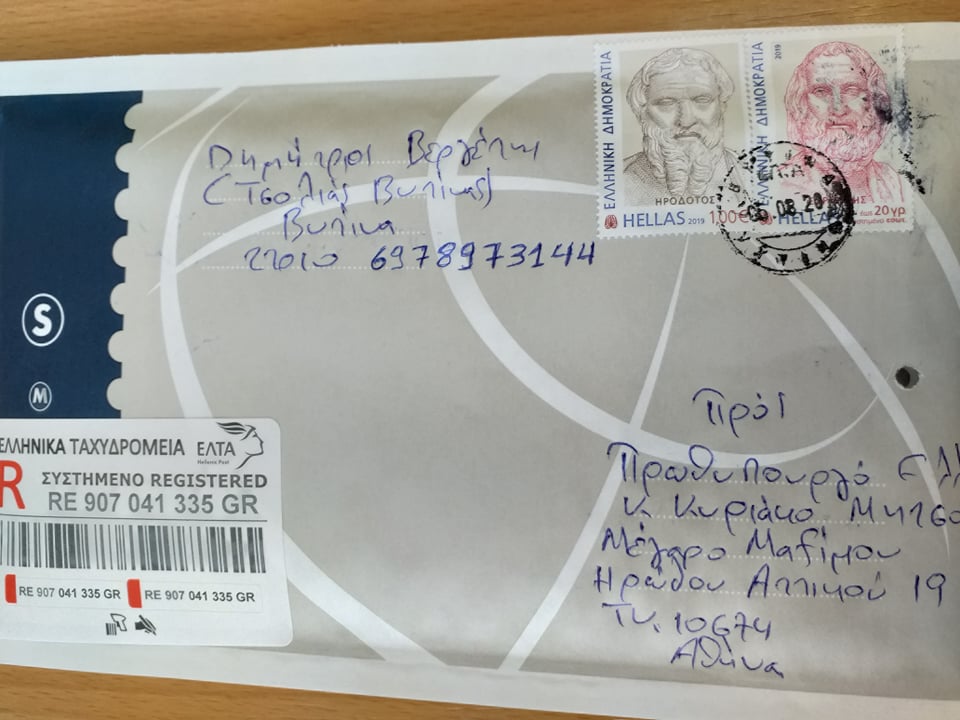 ΕΛΛΗΝΙΚΗ ΔΗΜΟΚΡΑΤΙΑ
ΗΡΟΔΟΤΟΣ
HELLAS 2019 1,00€
ΕΛΛΗΝΙΚΗ ΔΗΜΟΚΡΑΤΙΑ
2019
HELLAS έως 20γρ.
Δημήτρης Βεργέτης
(Τσολιάς Βυτίνας)
Βυτίνα
22010 6978973144
S
M
ΕΛΛΗΝΙΚΑ ΤΑΧΥΔΡΟΜΕΙΑ ΕΛΤΑ
Hellenic Post
R ΣΥΣΤΗΜΕΝΟ REGISTERED
RE 907 041 335 GR
RE 907 041 335 GR RE 907 041 335 GR
Πρός
Πρωθυπουργό Ελλ
κ. Κυριάκο Μητσο
Μέγαρο Μαξίμου
Ηρώδου Αττικού 19
Τκ. 10674
Αθήνα